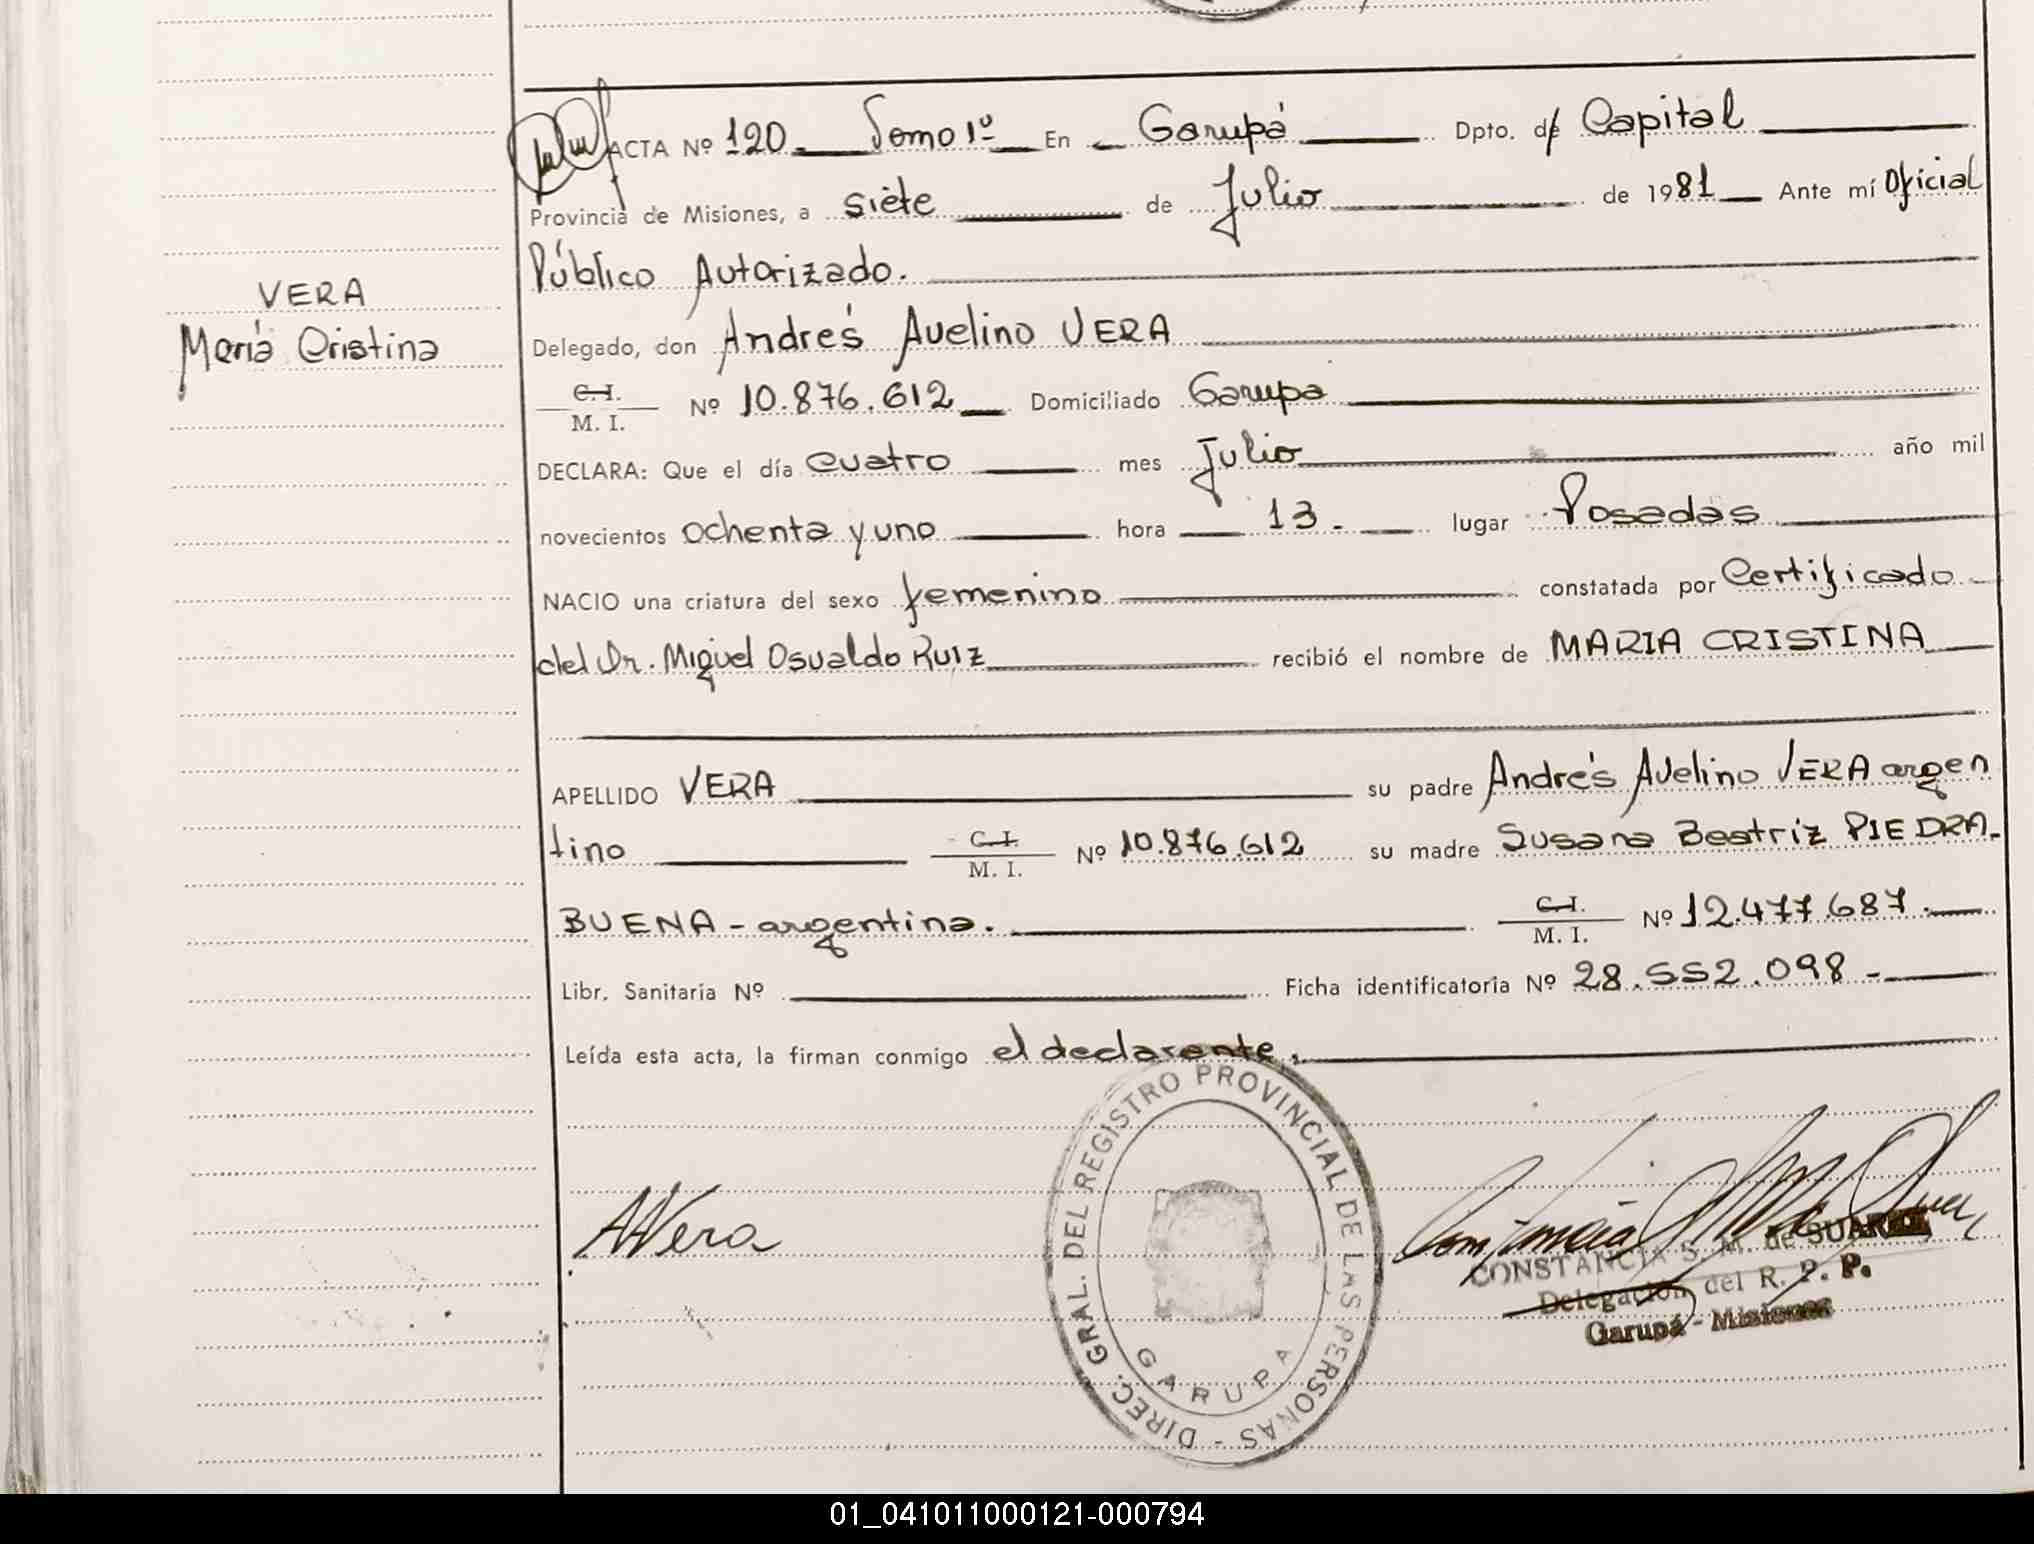 ACTA Nº 120 Tomo 1º En Garupá Dpto. de Capital
Provincia de Misiones, a siete de Julio de 1981 Ante mí Oficial
Público Autorizado.
VERA
María Cristina
Delegado, don Andrés Avelino VERA
C.I.
M. I. Nº 10.876.612 Domiciliado Garupá
DECLARA: Que el día cuatro mes Julio año mil
novecientos ochenta y uno hora 13. lugar Posadas
NACIO una criatura del sexo femenino constatada por Certificado
del Dr. Miguel Osvaldo Ruiz recibió el nombre de MARIA CRISTINA
APELLIDO VERA su padre Andrés Avelino VERA argen
tino C.I. M. I. Nº 10.876.612 su madre Susana Beatriz PIEDRA-
BUENA - argentina. C.I. M. I. Nº 12.477.687.
Libr. Sanitaria Nº Ficha identificatoria Nº 28.552.098.-
Leída esta acta, la firman conmigo el declarante.
AVera
DIREC. GRAL. DEL REGISTRO PROVINCIAL DE LAS PERSONAS -
GARUPA
CONSTANCIA S. M. de SUAREZ
Delegación del R. P. P.
Garupá - Misiones
01_041011000121-000794